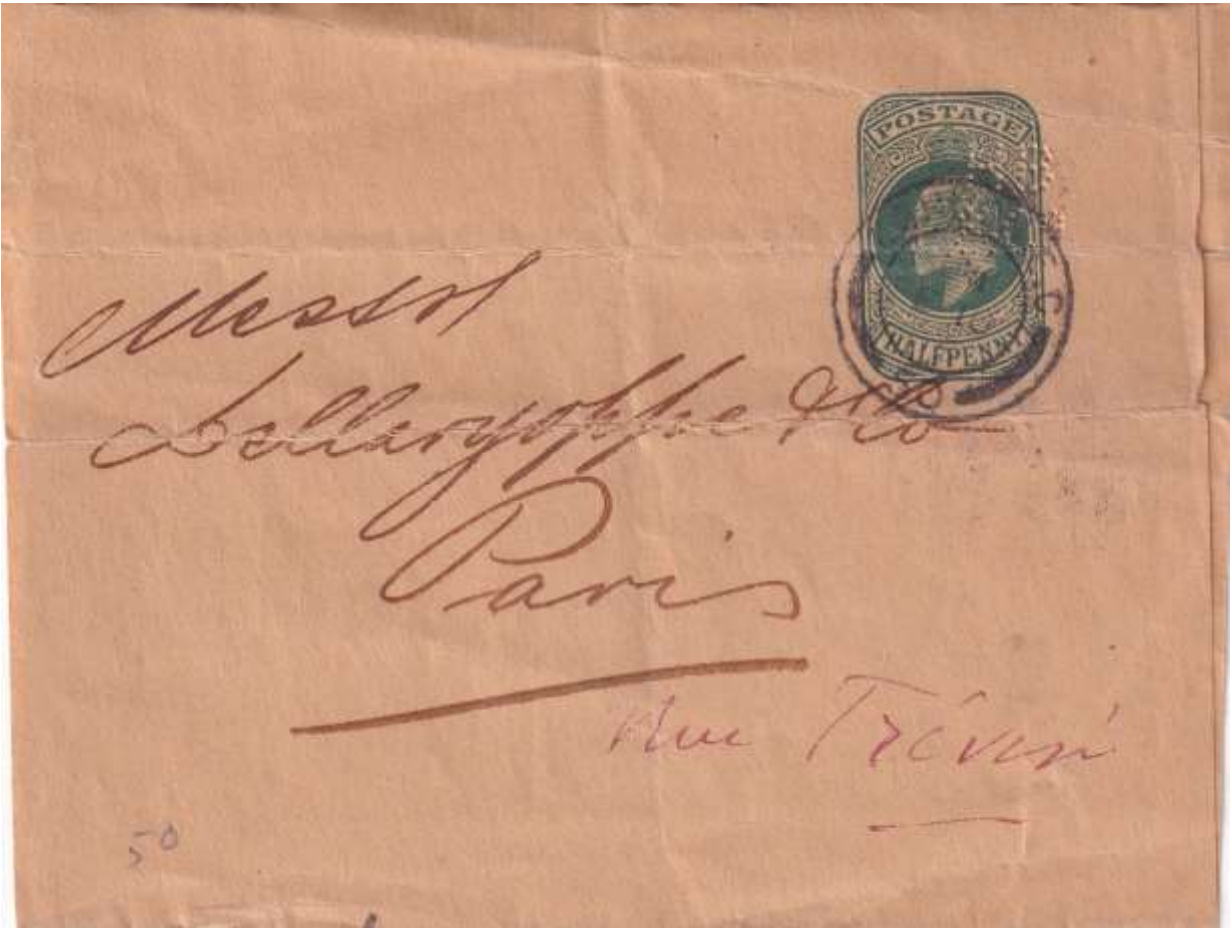 POSTAGE
HALFPENNY
Messrs
& Co
Paris
Rue Trévise
50